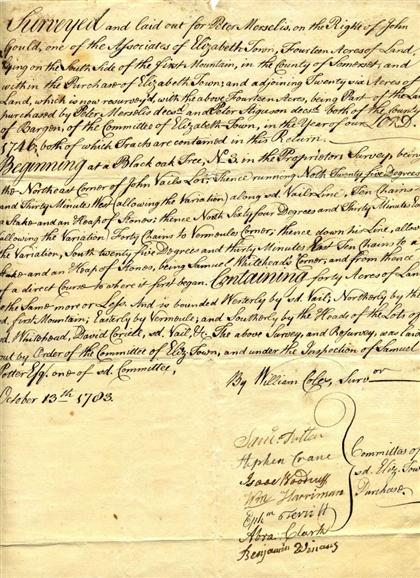 Surveyed and laid out for Peter Merselis, on the Right of John
Gould, one of the Associates of Elizabeth Town, Fourteen Acres of Land,
lying on the South Side of the First Mountain, in the County of Somerset, and
within the Purchase of Elizabeth Town; and adjoining Twenty six Acres of
Land, which is now resurvey'd, with the above Fourteen Acres, being Part of the Land
purchased by Peter Merselis decsd. and Peter Ferguson, both of the County
of Bargen, of the Committee of Elizabeth Town, in the Year of our LORD
1746, both of which Tracts are contained in this Return.
Beginning at a Black oak Tree, No. 3, in the Proprietors Survey, being
the Northeast Corner of John Vails Lot; Thence running North Twenty five Degrees
and Thirty Minutes West (allowing the Variation) along sd. Vails Line Ten Chains
a Stake and an Heap of Stones; thence North Sixty four Degrees and Thirty Minutes E
(allowing the Variation) Forty Chains to Vermeules Corner; thence down his Line, allow
the Variation, South twenty five Degrees and thirty Minutes East Ten Chains to a
Stake and an Heap of Stones, being Samuel Whiteheads Corner; and from thence
of a direct Course to where it first began. Containing forty Acres of Land
be the Same more or Less. And is bounded Westerly by sd. Vail; Northerly by th
sd. first Mountain; Easterly by Vermeule; and Southerly by the Heads of the Lots of
sd. Whitehead, David Coriell, sd. Vail, &c. The above Survey, and Resurvey, was laid
out by Order of the Committee of Eliz. Town, and under the Inspection of Samuel
Potter Esq. one of sd. Committee,
By William Coles, Survor
October 13th 1783.
Saml. Potter
Stephen Crane
Isaac Woodruff
Wm Harriman
Ephm Terrill
Abra. Clark
Benjamin Winans
Committee of
sd. Eliz. Tow
Purchase